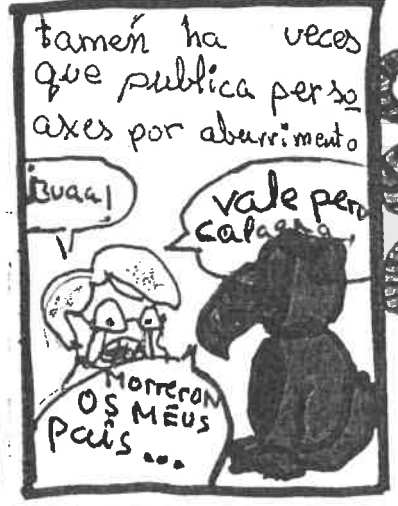 tamen̄ ha veces
que publica perso
axes por aburrimento
Buaa!
vale pero
MORRERON
OS MEUS
PAÍS...